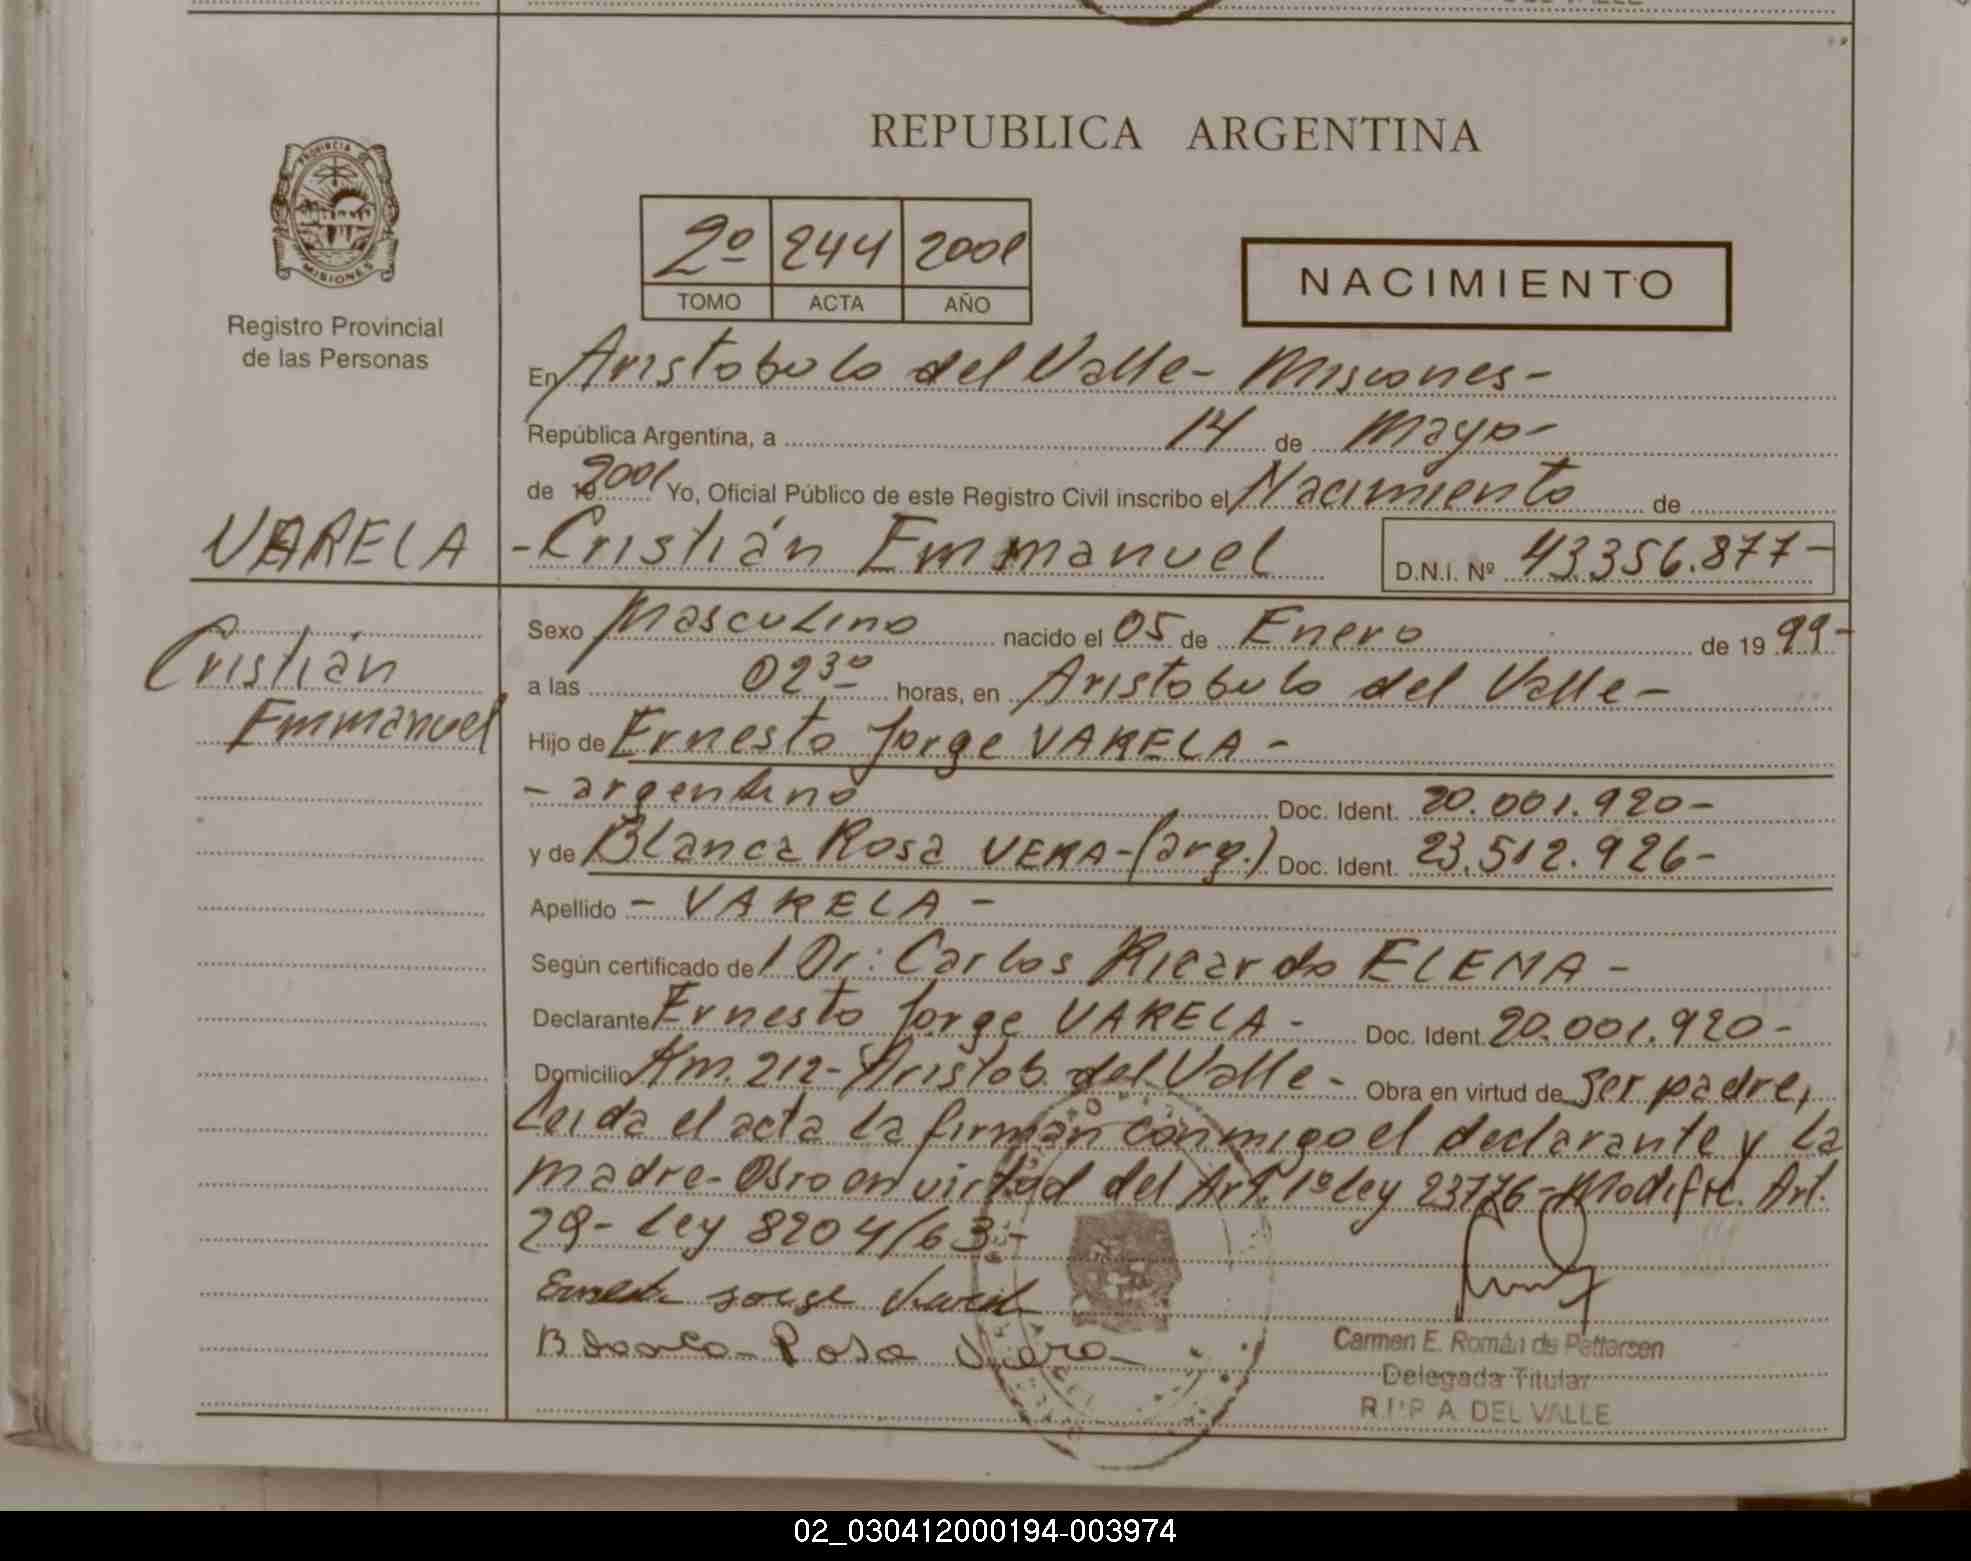 REPUBLICA ARGENTINA
PROVINCIA DE
MISIONES
Registro Provincial
de las Personas
2º 244 2001
TOMO ACTA AÑO
NACIMIENTO
En Aristobulo del Valle - Misiones -
República Argentina, a 14 de Mayo -
de 19 2001 Yo, Oficial Público de este Registro Civil inscribo el Nacimiento de
VARELA
- Cristián Emmanuel D.N.I. Nº 43.356.877 -
Cristián
Emmanuel
Sexo Masculino nacido el 05 de Enero de 19 99 -
a las 02 30 horas, en Aristobulo del Valle -
Hijo de Ernesto Jorge VARELA -
- argentino Doc. Ident. 20.001.920 -
y de Blanca Rosa VERA - (arg.) Doc. Ident. 23.512.926 -
Apellido - VARELA -
Según certificado de l Dr: Carlos Ricardo ELENA -
Declarante Ernesto Jorge VARELA - Doc. Ident. 20.001.920 -
Domicilio Km. 212 - Aristob. del Valle - Obra en virtud de ser padre,
Leida el acta la firman conmigo el declarante y la
madre - Obro en virtud del Art. 1º Ley 23776 - Modific. Art.
29 - Ley 8204/63 -
Ernesto Jorge Varela
Blanca Rosa Vera
Carmen E. Román de Pettersen
Delegada Titular
R.P.P A. DEL VALLE
02_030412000194-003974